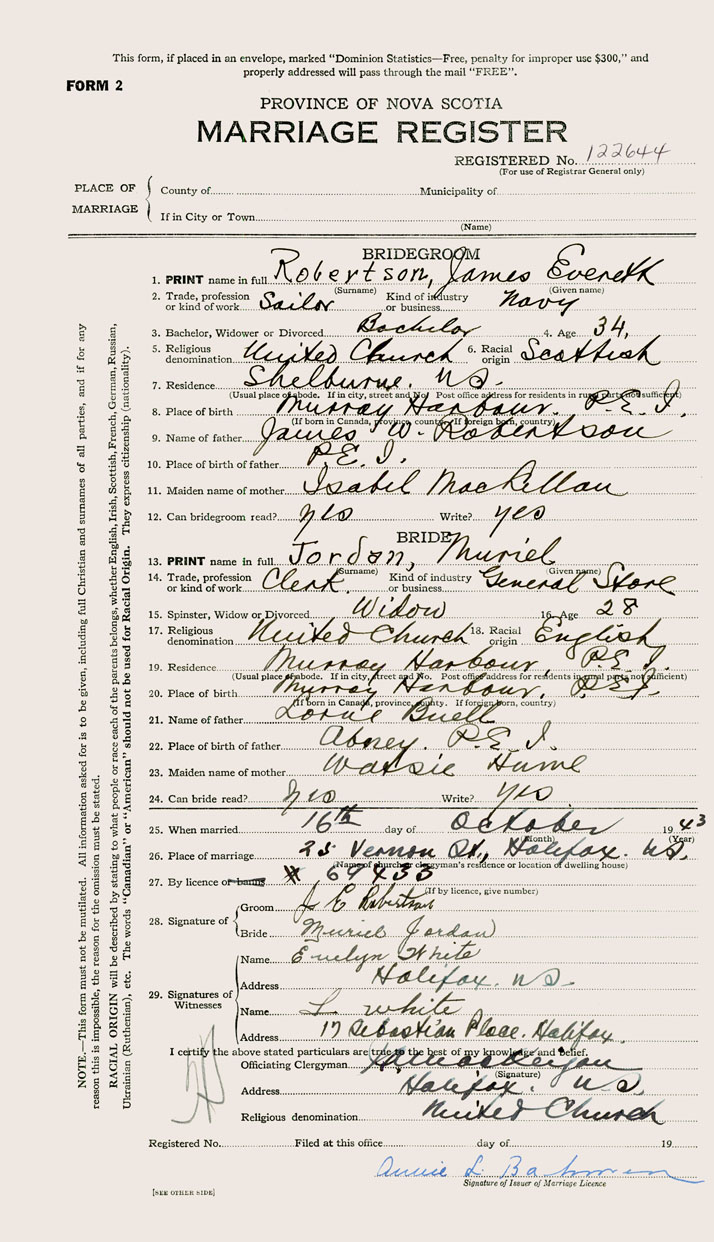 This form, if placed in an envelope, marked "Dominion Statistics—Free, penalty for improper use $300," and
properly addressed will pass through the mail "FREE".
FORM 2
PROVINCE OF NOVA SCOTIA
MARRIAGE REGISTER
REGISTERED No. 122644
(For use of Registrar General only)
PLACE OF MARRIAGE
County of Municipality of
If in City or Town
(Name)
BRIDEGROOM
1. PRINT name in full Robertson, James Evereth
(Surname) (Given name)
2. Trade, profession or kind of work Sailor Kind of industry or business Navy
3. Bachelor, Widower or Divorced Bachelor 4. Age 34,
5. Religious denomination United Church 6. Racial origin Scottish
7. Residence Shelburne. N.S.
(Usual place of abode. If in city, street and No. Post office address for residents in rural parts not sufficient)
8. Place of birth Murray Harbour. P.E.I.
(If born in Canada, province, county. If foreign born, country)
9. Name of father James W. Robertson
10. Place of birth of father P.E.I.
11. Maiden name of mother Isabel MacKillan
12. Can bridegroom read? yes Write? yes
BRIDE
13. PRINT name in full Jordon, Muriel
(Surname) (Given name)
14. Trade, profession or kind of work Clerk Kind of industry or business General Store
15. Spinster, Widow or Divorced Widow 16. Age 28
17. Religious denomination United Church 18. Racial origin English
19. Residence Murray Harbour, P.E.I.
(Usual place of abode. If in city, street and No. Post office address for residents in rural parts not sufficient)
20. Place of birth Murray Harbour, P.E.I.
(If born in Canada, province, county. If foreign born, country)
21. Name of father Lorne Buell
22. Place of birth of father Abney. P.E.I.
23. Maiden name of mother Watsie Hume
24. Can bride read? Yes Write? Yes
25. When married 16th day of October 1943
(Month) (Year)
26. Place of marriage 25 Vernon St., Halifax. N.S.
(Name of church or clergyman's residence or location of dwelling house)
27. By licence or banns # 69433
(If by licence, give number)
28. Signature of
Groom J E Robertson
Bride Muriel Jordan
29. Signatures of Witnesses
Name Evelyn White
Address Halifax. N.S.
Name L. White
Address 17 Sebastian Place. Halifax.
I certify the above stated particulars are true to the best of my knowledge and belief.
Officiating Clergyman
(Signature)
Address Halifax. N.S.
Religious denomination United Church
Registered No. Filed at this office day of 19
Annie L.
Signature of Issuer of Marriage Licence
[SEE OTHER SIDE]
NOTE.—This form must not be mutilated. All information asked for is to be given, including full Christian and surnames of all parties, and if for any
reason this is impossible, the reason for the omission must be stated.
RACIAL ORIGIN will be described by stating to what people or race each of the parents belongs, whether English, Irish, Scottish, French, German, Russian,
Ukrainian (Ruthenian), etc. The words "Canadian" or "American" should not be used for Racial Origin. They express citizenship (nationality).